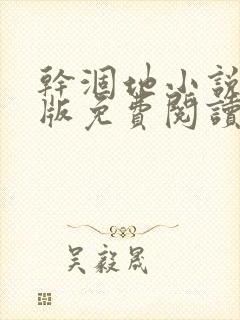 幹涸地小說
版免費閱讀
吴毅晟